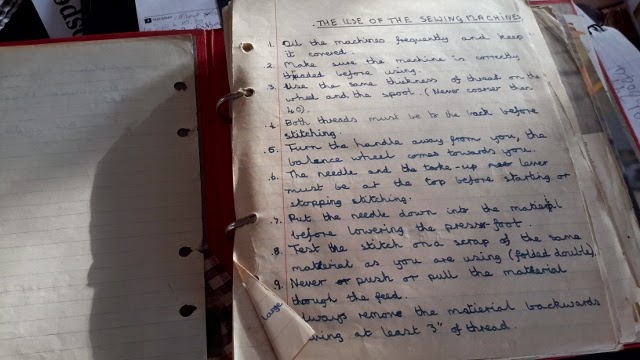 THE USE OF THE SEWING MACHINES.
1. Oil the machines frequently and keep
it covered.
2. Make sure the machine is correctly
threaded before using.
3. Use the same thickness of thread on the
wheel and the spool. (Never coarser than
40).
4. Both threads must be to the back before
stitching.
5. Turn the handle away from you, the
balance wheel comes towards you.
6. The needle and the take-up lever
must be at the top before starting or
stopping stitching.
7. Put the needle down into the material
before lowering the presser foot.
8. Test the stitch on a scrap of the same
material as you are using (folded double).
9. Never or push or pull the material
though the feed.
always remove the matierial backwards
at least 3" of thread.
large